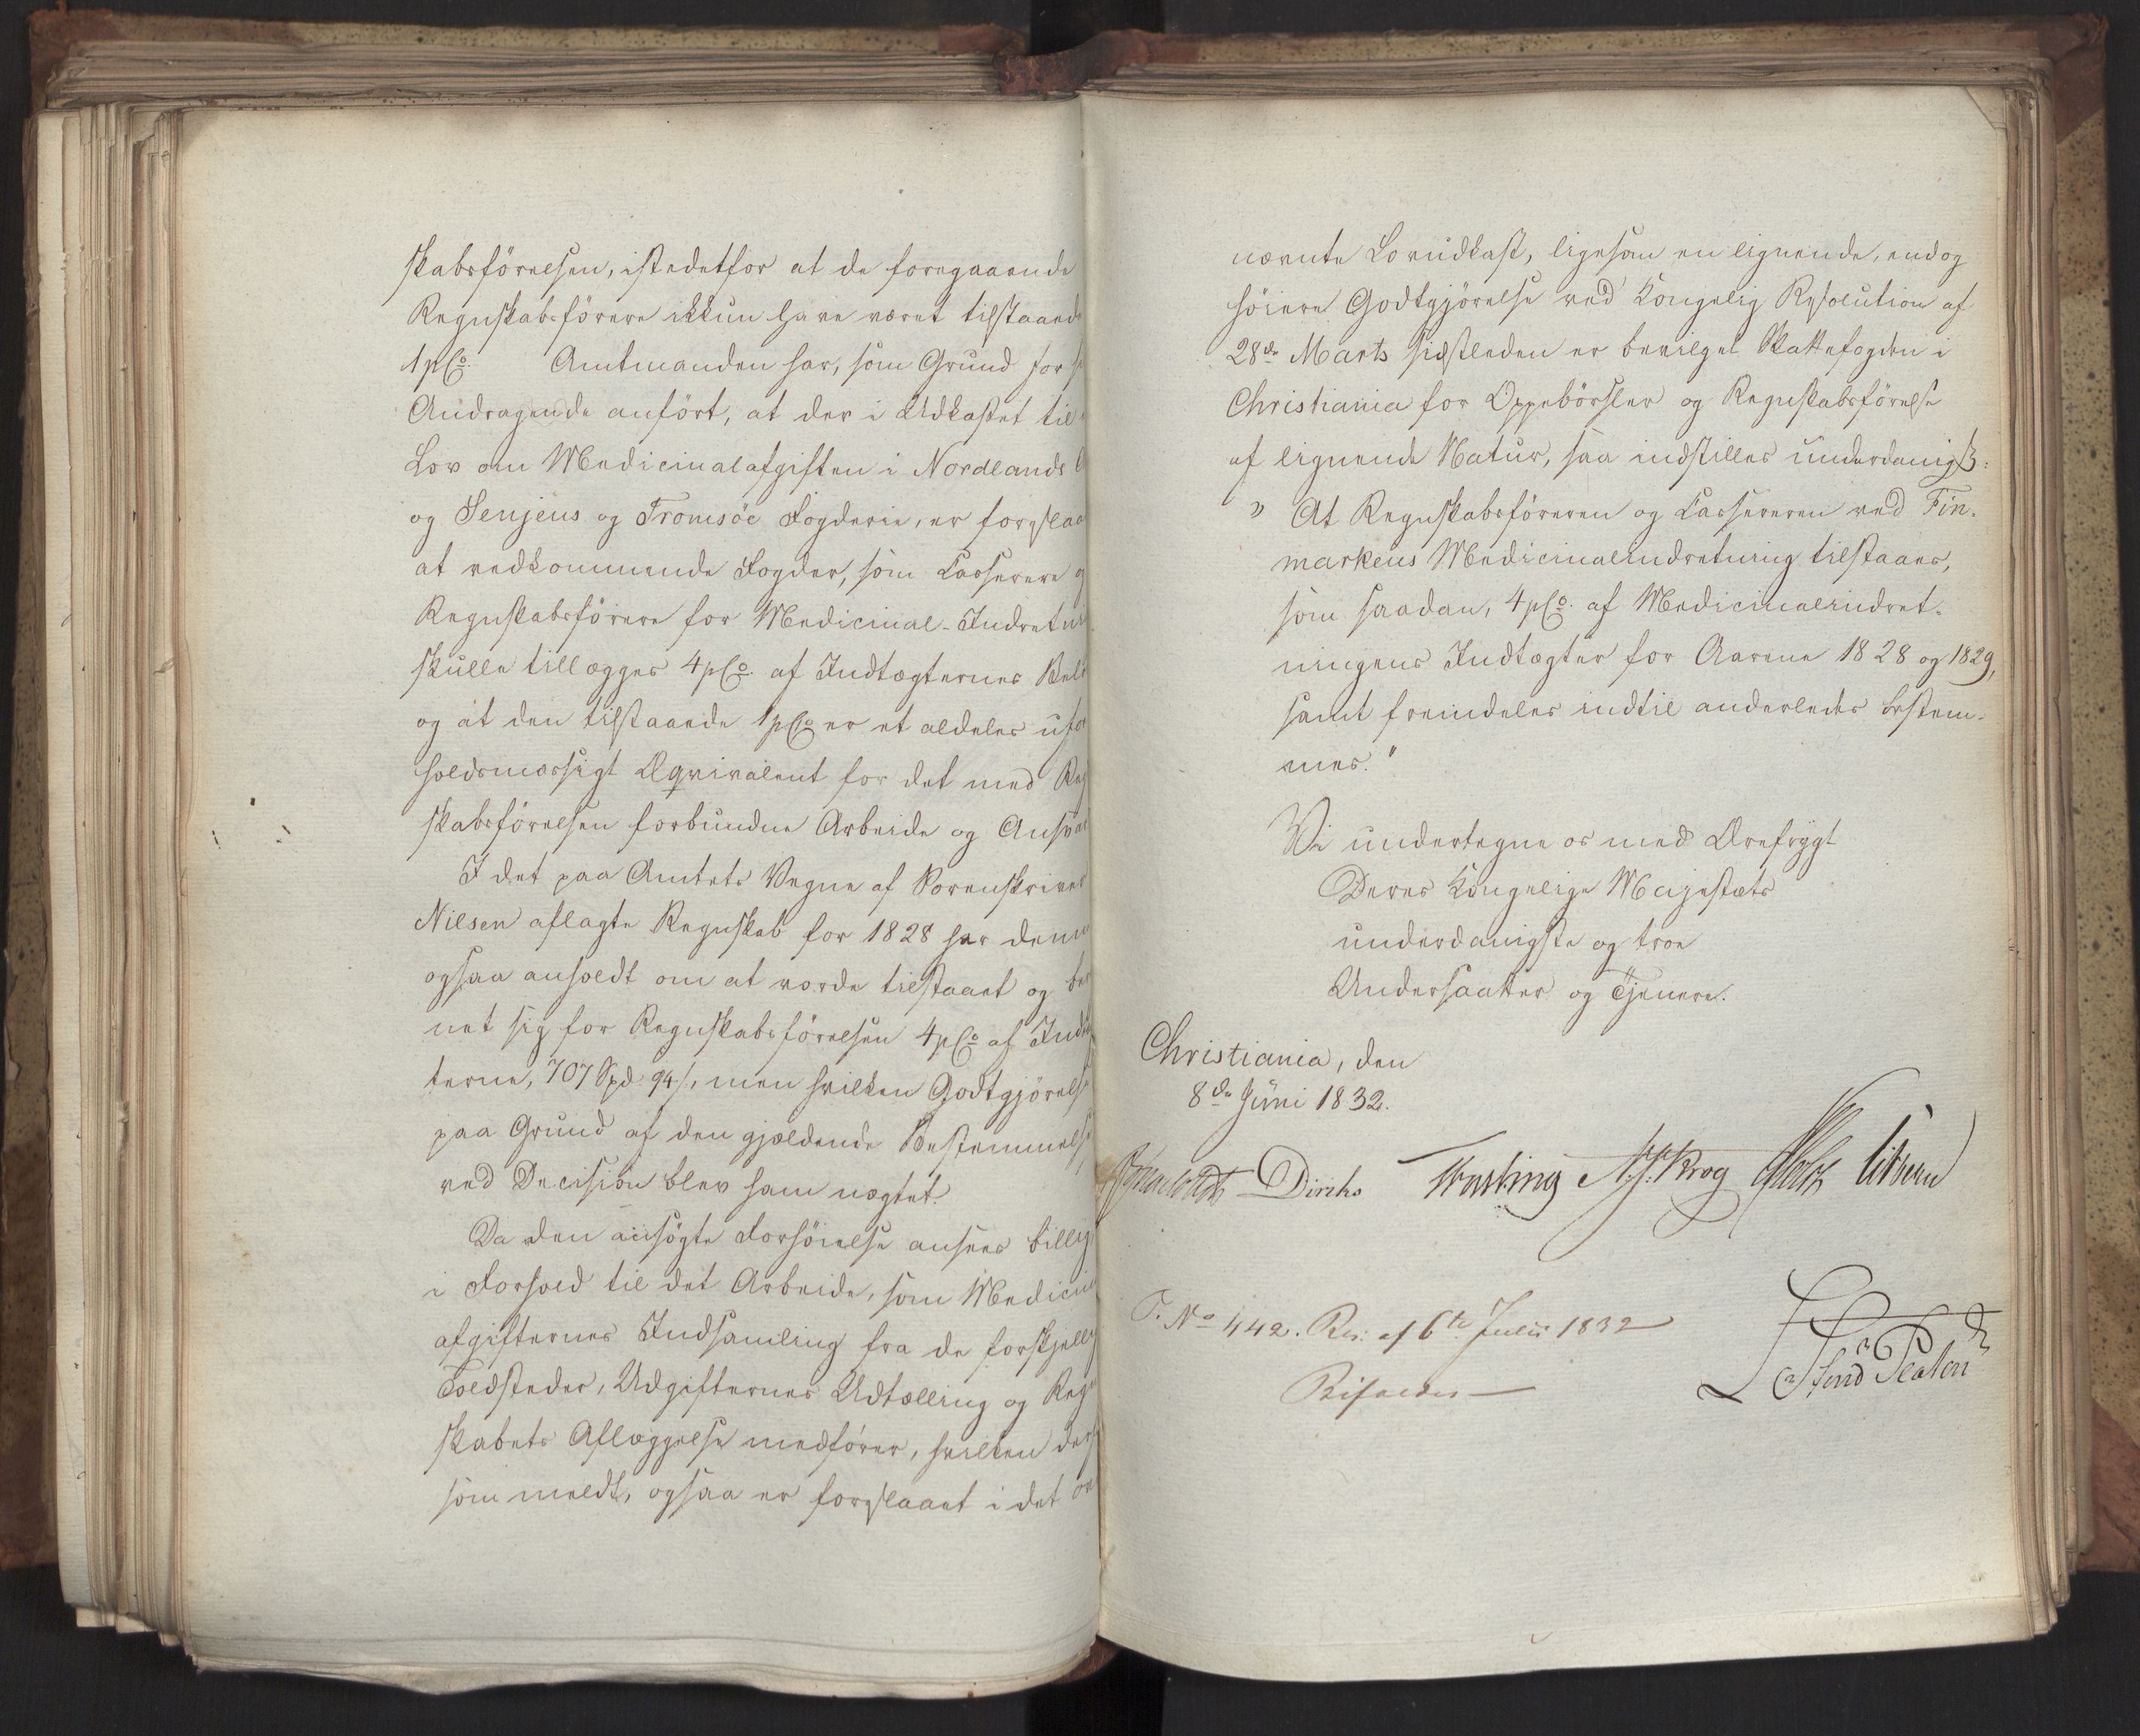 skabsförelsen, istedetfor at de foregaaende
Regnskabsförere ikkun have været tilstaaede
1 pCo. Amtmanden har, som Grund for
Andragende anfört, at der i Udkastet til
Lov om Medicinalafgiften i Nordlands
og Senjens og Tromsöe Fogderie, er foreslaa
at vedkommende Fogder, som Casserere
Regnskabsförere for Medicinal-Indretni
skulle tillægges 4 pCo. af Indtægternes Belö
og at den tilstaaede 1 pCo er et aldeles ufor
holdsmæssigt Æqvivalent for det med Reg
skabsförelsen forbundne Arbeide og Ansvar
I det paa Amtets Vegne af Sorenskriver
Nilsen aflagte Regnskab for 1828 har denne
ogsaa anholdt om at vorde tilstaaet og
net sig for Regnskabsförelsen 4 pCo af Indtæg
terne, 707 Spd. 94 s, men hvilken Godtgjörelse
paa Grund af den gjældende Bestemmelse
ved Decision blev ham nægtet.
Da den ansögte Forhöielse ansees billig
i Forhold til det Arbeide, som Medicin
afgifternes Indsamling fra de forskjellig
Toldsteder, Udgifternes Udtælling og Regn
skabets Aflæggelse medförer, hvilken
som meldt, ogsaa er foreslaaet i det
nævnte Lovudkast, ligesom en lignende, endog
höiere Godtgjörelse ved Kongelig Resolution af
28de Marts sidstleden er bevilget Skattefogden i
Christiania for Oppebörsler og Regnskabsförelse
af lignende Natur, saa indstilles underdanigst:
" At Regnskabsföreren og Cassereren ved Fin-
markens Medicinalindretning tilstaaes,
som saadan, 4 pCo. af Medicinalindret-
ningens Indtægter for Aarene 1828 og 1829,
samt fremdeles indtil anderledes bestem-
mes."
Vi undertegne os med Ærefrygt
Deres Kongelige Majestæts
underdanigste og troe
Undersaatter og Tjenere.
Christiania, den
8de Juni 1832.
Diriks Krog Holst
T. No 442. Res: af 6te Julii 1832
Bifaldes
Platen